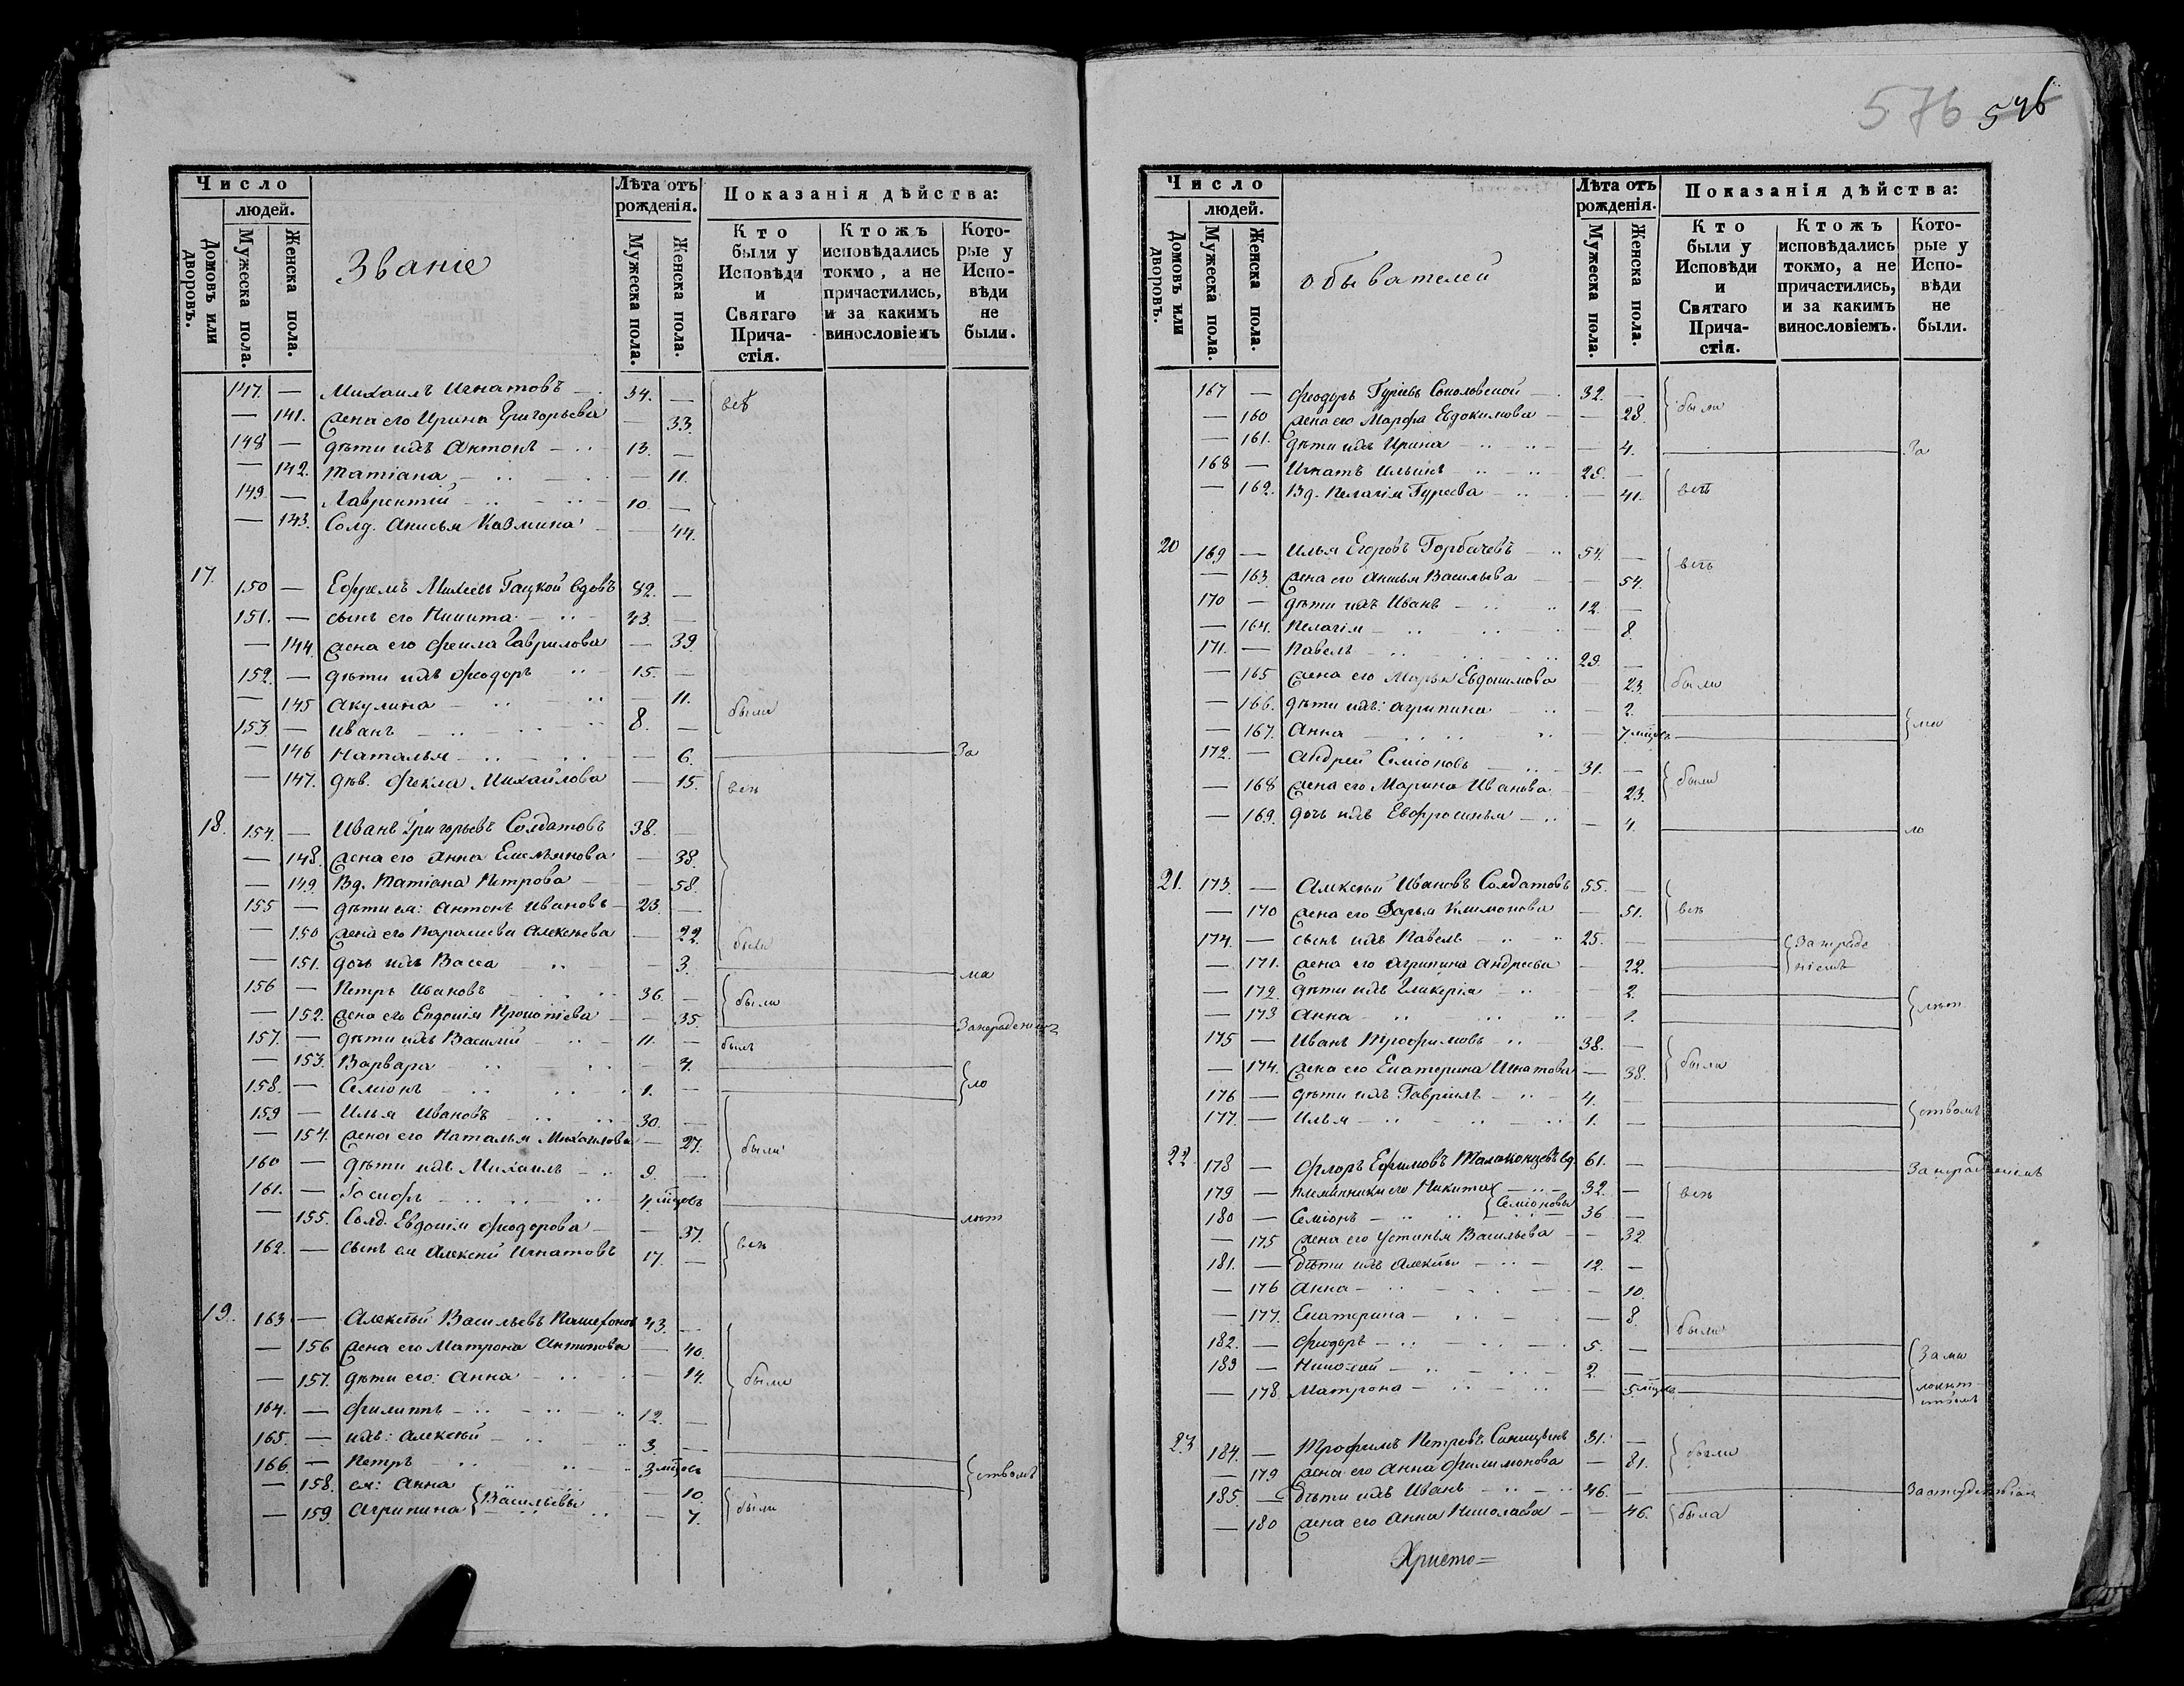 Число
людей.
Домовъ или дворовъ.
Мужеска пола.
Женска пола.
Званіе
Лѣта отъ рожденія.
Мужеска пола.
Женска пола.
Показанія дѣйства:
Кто были у Исповѣди и Святаго Причастія.
Ктожъ исповѣдались токмо, а не причастились, и за какимъ винословіемъ
Которые у Исповѣди не были.
147. — Михаилъ Игнатовъ — 34. — всѣ
— 141. жена его Ирина Григорьева — 33.
148 — дѣти ихъ Антонъ — 13. —
— 142. Татіана — 11.
149. — Лаврентій — 10 —
— 143. Солд. Анисья Казмина — 44.
17. 150 — Ефремъ Гацкой вдовъ 82. —
151. — сынъ его Никита — 43. —
— 144 жена его Гаврилова — 39
152. — дѣти ихъ Феодоръ 15. —
— 145 Акулина — 11.
153 — Иванъ — 8. — были
— 146 Наталья — 6. За
— 147. дѣв. Фекла Михайлова — 15. всѣ
18. 154. — Иванъ Григорьевъ Солдатовъ 38. —
— 148. жена его Анна Емельянова — 38.
— 149 Вд. Татіана Петрова — 58.
155 — дѣти ея: Антонъ Ивановъ — 23. —
— 150 жена его Параскева Алексѣева 22. были
— 151. дочь ихъ Васса — 3. ма
156 — Петръ Ивановъ 36. — были
— 152. жена его Евдокія Прокопіева — 35. За нерадѣніемъ
157. — дѣти ихъ Василій — 11. — былъ
— 153. Варвара — 4.
158. — Семіонъ 1. — ло
159 — Илья Ивановъ 30. —
— 154. жена его Наталья Михаилова — 27. были
160 — дѣти ихъ Михаилъ — 9. —
161. — Іосифъ — 4 мѣцовъ лѣт
— 155. Солд. Евдокія Феодорова — 37. всѣ
162. — сынъ ея Алексѣй Игнатовъ 17. —
19. 163 — Алексѣй Васильевъ 43. —
— 156 жена его Матрона Антипова — 40.
— 157. дѣти его: Анна — 14. были
164. — Филиппъ — 12. —
165. — ихъ: Алексѣй — 3. —
166. — Петръ — 3 мѣцовъ ствомъ
— 158. ея: Анна — 10.
— 159. Агрипина Васильевы — 7. были
576 576
Число
людей.
Домовъ или дворовъ.
Мужеска пола.
Женска пола.
обывателей
Лѣта отъ рожденія.
Мужеска пола.
Женска пола.
Показанія дѣйства:
Кто были у Исповѣди и Святаго Причастія.
Ктожъ исповѣдались токмо, а не причастились, и за какимъ винословіемъ.
Которые у Исповѣди не были.
167 — Феодоръ Гуріевъ Соколовской — 32. — были
— 160 жена его Марфа Евдокимова — 28.
— 161. дѣти ихъ Ирина — 4. За
168 — Игнатъ Ильинъ — 28. —
— 162. Вд. Пелагія Гуреева — 41. всѣ
20 169 — Илья Егоровъ Горбачевъ — 54. — всѣ
— 163. жена его Анисья Васильева — 54.
170 — дѣти ихъ Иванъ — 12. —
— 164. Пелагія — 8.
171. — Павелъ — 29. —
— 165 жена его Марья Евдокимова — 23. были
— 166. дѣти ихъ: Агрипина — 2. ма
— 167. Анна — 7 мѣцовъ
172. — Андрей Семіоновъ — 31. —
— 168 жена его Марина Иванова — 23. были
— 169. дочь ихъ Евфросинья — 4. ло
21. 173. — Алексѣй Ивановъ Солдатовъ 55. —
— 170 жена его Дарья Климонова — 51. всѣ
174. — сынъ ихъ Павелъ — 25. — За нерадѣ
— 171. жена его Агрипина Андреева — 22. ніемъ
— 172. дѣти ихъ Гликерія — 2. лѣт
— 173 Анна — 1.
175 — Иванъ Трофимовъ — 38. — были
— 174. жена его Екатерина Игнатова — 38.
176 — дѣти ихъ Гавріилъ — 4. — ствомъ
177. — Илья — 1. —
22 178 — Флоръ Ефимовъ вд. 61. — За нерадѣніемъ
179 — племянники его Никита 32. — всѣ
180 — Семіонъ — Семіоновы 36 —
— 175 жена его Устинья Васильева — 32
181. — дѣти ихъ Алексѣй — 12. —
— 176 Анна — 10.
— 177. Екатерина — 8. были
182. — Феодоръ — 5. — За ма
183 — Николай — 2. — лолѣт
— 178. Матрона — 5 мѣцовъ ствомъ
23 184. — Трофимъ Петровъ 31. — были
— 179 жена его Анна Филимонова — 81.
185. — дѣти ихъ Иванъ — 46. — За отсудствіемъ
— 180 жена его Анна Николаева — 46. была
Христо=